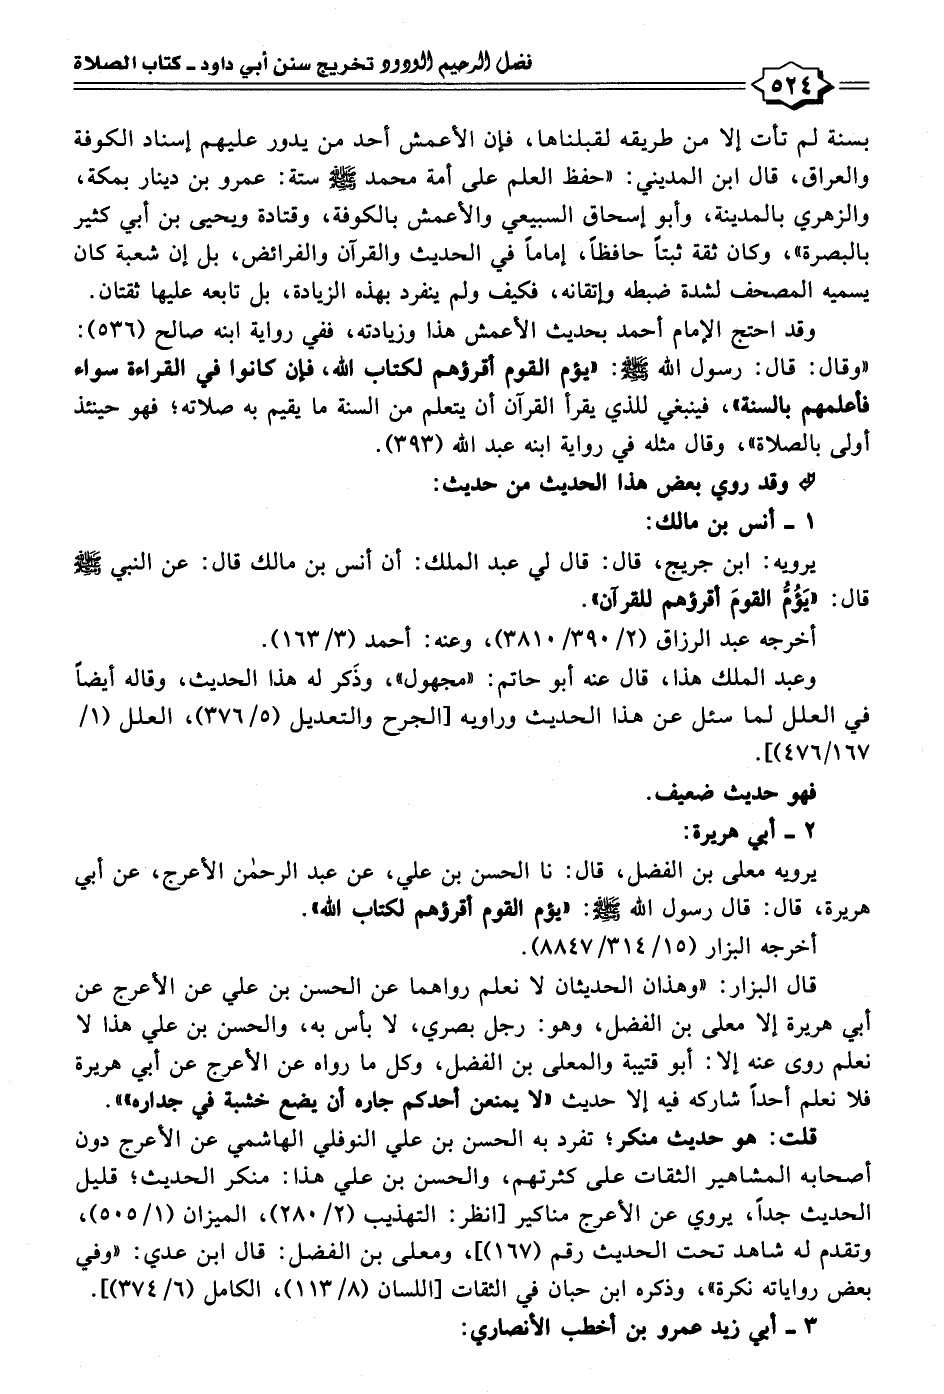 فضل الرحيم الودود تخريج سنن أبي داود - كتاب الصلاة
٥٢٤
بسنة لم تأت إلا من طريقه لقبلناها، فإن الأعمش أحد من يدور عليهم إسناد الكوفة
والعراق، قال ابن المديني: «حفظ العلم على أمة محمد ﷺ ستة: عمرو بن دينار بمكة،
والزهري بالمدينة، وأبو إسحاق السبيعي والأعمش بالكوفة، وقتادة ويحيى بن أبي كثير
بالبصرة»، وكان ثقة ثبتاً حافظاً، إماماً في الحديث والقرآن والفرائض، بل إن شعبة كان
يسميه المصحف لشدة ضبطه وإتقانه، فكيف ولم ينفرد بهذه الزيادة، بل تابعه عليها ثقتان.
وقد احتج الإمام أحمد بحديث الأعمش هذا وزيادته، ففي رواية ابنه صالح (٥٣٦):
«وقال: قال: رسول الله ﷺ: «يؤم القوم أقرؤهم لكتاب الله، فإن كانوا في القراءة سواء
فأعلمهم بالسنة»، فينبغي للذي يقرأ القرآن أن يتعلم من السنة ما يقيم به صلاته؛ فهو حينئذ
أولى بالصلاة»، وقال مثله في رواية ابنه عبد الله (٣٩٣).
وقد روي بعض هذا الحديث من حديث:
١ - أنس بن مالك:
يرويه: ابن جريج، قال: قال لي عبد الملك: أن أنس بن مالك قال: عن النبي ﷺ
قال: «يَؤُمُّ القومَ أقرؤهم للقرآن».
أخرجه عبد الرزاق (٢/ ٣٩٠/ ٣٨١٠)، وعنه: أحمد (٣/ ١٦٣).
وعبد الملك هذا، قال عنه أبو حاتم: «مجهول»، وذَكر له هذا الحديث، وقاله أيضاً
في العلل لما سئل عن هذا الحديث وراويه [الجرح والتعديل (٥/ ٣٧٦)، العلل (١/
١٦٧/ ٤٧٦)].
فهو حديث ضعيف.
٢ - أبي هريرة:
يرويه معلى بن الفضل، قال: نا الحسن بن علي، عن عبد الرحمٰن الأعرج، عن أبي
هريرة، قال: قال رسول الله ﷺ: «يؤم القوم أقرؤهم لكتاب الله».
أخرجه البزار (١٥/ ٣١٤/ ٨٨٤٧).
قال البزار: «وهذان الحديثان لا نعلم رواهما عن الحسن بن علي عن الأعرج عن
أبي هريرة إلا معلى بن الفضل، وهو: رجل بصري، لا بأس به، والحسن بن علي هذا لا
نعلم روى عنه إلا: أبو قتيبة والمعلى بن الفضل، وكل ما رواه عن الأعرج عن أبي هريرة
فلا نعلم أحداً شاركه فيه إلا حديث «لا يمنعن أحدكم جاره أن يضع خشبة في جداره»».
قلت: هو حديث منكر؛ تفرد به الحسن بن علي النوفلي الهاشمي عن الأعرج دون
أصحابه المشاهير الثقات على كثرتهم، والحسن بن علي هذا: منكر الحديث؛ قليل
الحديث جداً، يروي عن الأعرج مناكير [انظر: التهذيب (٢/ ٢٨٠)، الميزان (١/ ٥٠٥)،
وتقدم له شاهد تحت الحديث رقم (١٦٧)]، ومعلى بن الفضل: قال ابن عدي: «وفي
بعض رواياته نكرة»، وذكره ابن حبان في الثقات [اللسان (٨/ ١١٣)، الكامل (٦/ ٣٧٤)].
٣ - أبي زيد عمرو بن أخطب الأنصاري: